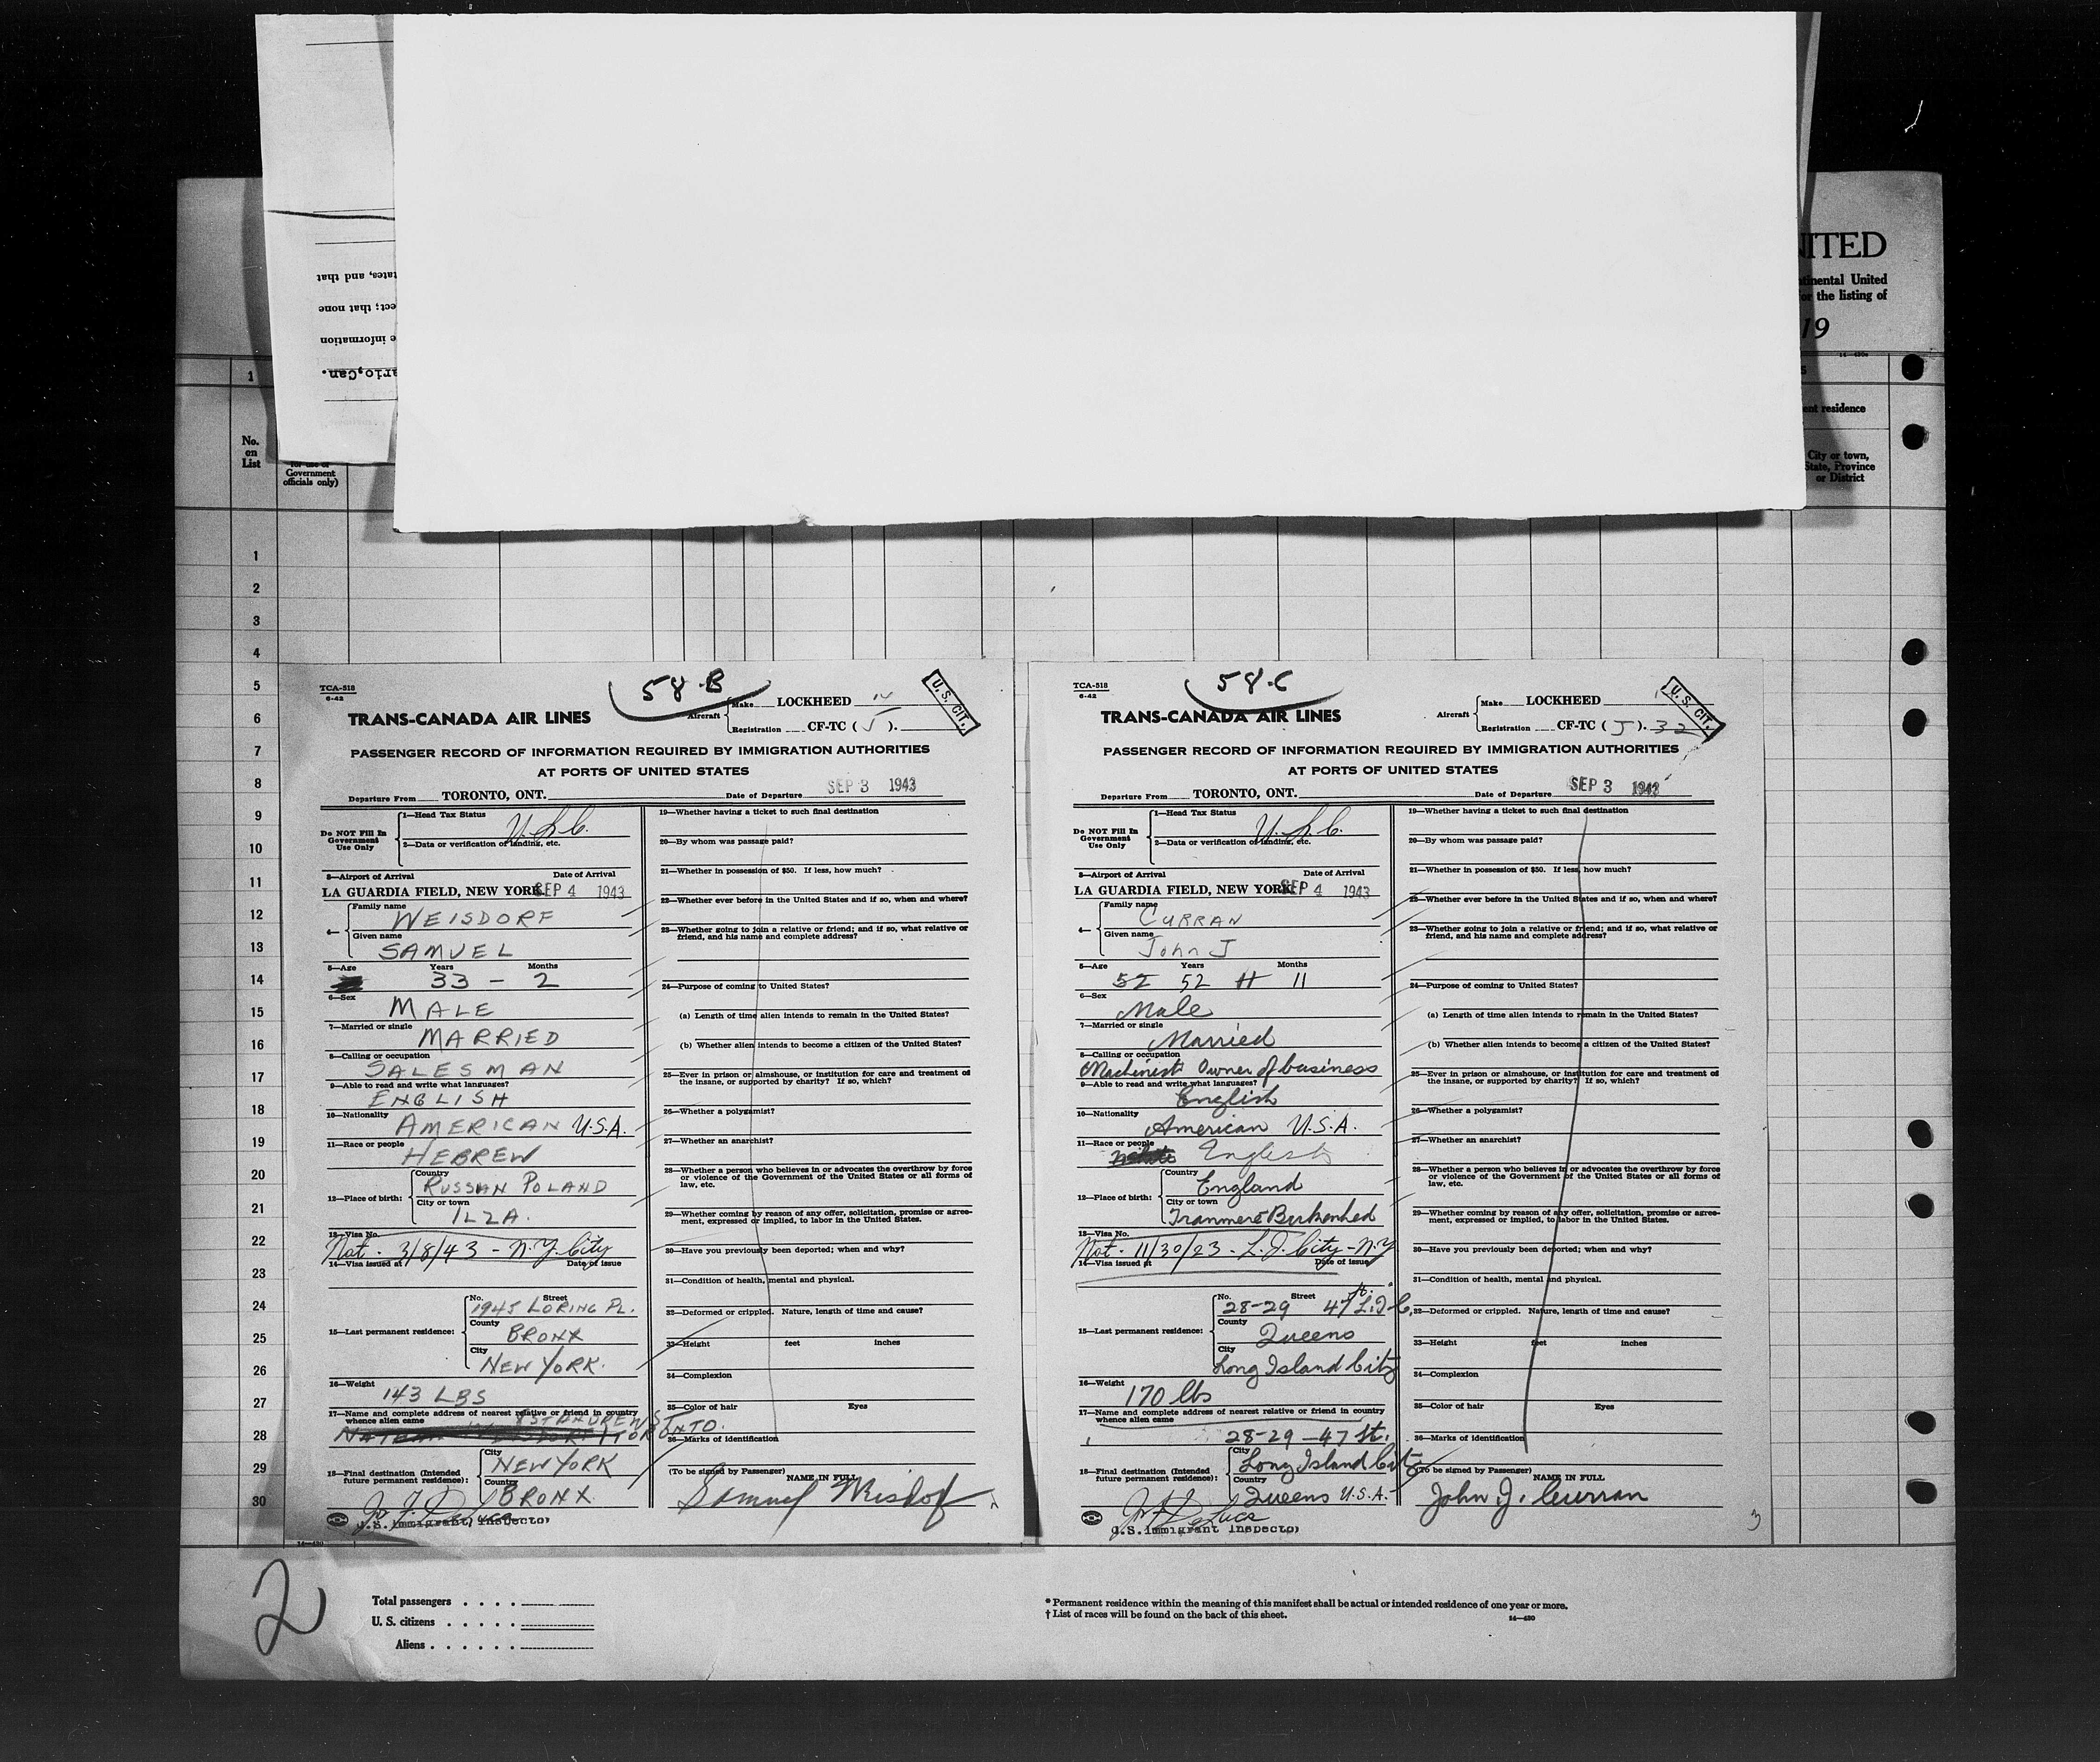 NITED
tinental United
or the listing of
19
1
ent residence
No.
on
List
Government
officials only)
City or town,
State, Province
or District
1
2
3
4
5
6
7
8
9
10
11
12
13
14
15
16
17
18
19
20
21
22
23
24
25
26
27
28
29
30
58-B
TCA-518
6-42
TRANS-CANADA AIR LINES
Aircraft
Make LOCKHEED
Registration CF-TC (J).
U. S. CIT.
PASSENGER RECORD OF INFORMATION REQUIRED BY IMMIGRATION AUTHORITIES
AT PORTS OF UNITED STATES
Departure From TORONTO, ONT. Date of Departure SEP 3 1943
Do NOT Fill In
Government
Use Only
1—Head Tax Status
U.S.C.
2—Data or verification of landing, etc.
3—Airport of Arrival Date of Arrival
LA GUARDIA FIELD, NEW YORK SEP 4 1943
4— Family name
WEISDORF
Given name
SAMUEL
5—Age Years Months
33 - 2
6—Sex
MALE
7—Married or single
MARRIED
8—Calling or occupation
SALESMAN
9—Able to read and write what languages?
ENGLISH
10—Nationality
AMERICAN U.S.A.
11—Race or people
HEBREW
12—Place of birth: Country
RUSSIAN POLAND
City or town
ILZA.
13—Visa No.
Nat. 3/8/43 - N.Y. City
14—Visa issued at Date of issue
No. Street
1945 LORING PL.
15—Last permanent residence: County
BRONX
City
NEW YORK.
16—Weight
143 LBS
17—Name and complete address of nearest relative or friend in country
whence alien came
TORONTO.
18—Final destination (Intended
future permanent residence):
City
NEW YORK
Country
BRONX.
U.S. Immigrant Inspector
19—Whether having a ticket to such final destination
20—By whom was passage paid?
21—Whether in possession of $50. If less, how much?
22—Whether ever before in the United States and if so, when and where?
23—Whether going to join a relative or friend; and if so, what relative or
friend, and his name and complete address?
24—Purpose of coming to United States?
(a) Length of time alien intends to remain in the United States?
(b) Whether alien intends to become a citizen of the United States?
25—Ever in prison or almshouse, or institution for care and treatment of
the insane, or supported by charity? If so, which?
26—Whether a polygamist?
27—Whether an anarchist?
28—Whether a person who believes in or advocates the overthrow by force
or violence of the Government of the United States or all forms of
law, etc.
29—Whether coming by reason of any offer, solicitation, promise or agree-
ment, expressed or implied, to labor in the United States.
30—Have you previously been deported; when and why?
31—Condition of health, mental and physical.
32—Deformed or crippled. Nature, length of time and cause?
33—Height feet inches
34—Complexion
35—Color of hair Eyes
36—Marks of identification
(To be signed by Passenger) NAME IN FULL
Samuel Weisdorf
58-C
TCA-518
6-42
TRANS-CANADA AIR LINES
Aircraft
Make LOCKHEED
Registration CF-TC (J). 32
U. S. CIT.
PASSENGER RECORD OF INFORMATION REQUIRED BY IMMIGRATION AUTHORITIES
AT PORTS OF UNITED STATES
Departure From TORONTO, ONT. Date of Departure SEP 3 1943
Do NOT Fill In
Government
Use Only
1—Head Tax Status
U.S.C.
2—Data or verification of landing, etc.
3—Airport of Arrival Date of Arrival
LA GUARDIA FIELD, NEW YORK SEP 4 1943
4— Family name
CURRAN
Given name
John J
5—Age Years Months
52 52 11 11
6—Sex
Male
7—Married or single
Married
8—Calling or occupation
Machinist Owner of business
9—Able to read and write what languages?
English
10—Nationality
American U.S.A.
11—Race or people
English
12—Place of birth: Country
England
City or town
Tranmere Birkenhed
13—Visa No.
Nat. 11/30/23 - L.I. City - N.Y
14—Visa issued at Date of issue
No. Street
28-29 47 St. L.I.C.
15—Last permanent residence: County
Queens
City
Long Island City
16—Weight
170 lbs
17—Name and complete address of nearest relative or friend in country
whence alien came
28-29 — 47 St.
18—Final destination (Intended
future permanent residence):
City
Long Island City
Country
Queens U.S.A.
U.S. Immigrant Inspector
19—Whether having a ticket to such final destination
20—By whom was passage paid?
21—Whether in possession of $50. If less, how much?
22—Whether ever before in the United States and if so, when and where?
23—Whether going to join a relative or friend; and if so, what relative or
friend, and his name and complete address?
24—Purpose of coming to United States?
(a) Length of time alien intends to remain in the United States?
(b) Whether alien intends to become a citizen of the United States?
25—Ever in prison or almshouse, or institution for care and treatment of
the insane, or supported by charity? If so, which?
26—Whether a polygamist?
27—Whether an anarchist?
28—Whether a person who believes in or advocates the overthrow by force
or violence of the Government of the United States or all forms of
law, etc.
29—Whether coming by reason of any offer, solicitation, promise or agree-
ment, expressed or implied, to labor in the United States.
30—Have you previously been deported; when and why?
31—Condition of health, mental and physical.
32—Deformed or crippled. Nature, length of time and cause?
33—Height feet inches
34—Complexion
35—Color of hair Eyes
36—Marks of identification
(To be signed by Passenger) NAME IN FULL
John J. Curran
3
2
Total passengers
U. S. citizens
Aliens
* Permanent residence within the meaning of this manifest shall be actual or intended residence of one year or more.
† List of races will be found on the back of this sheet.